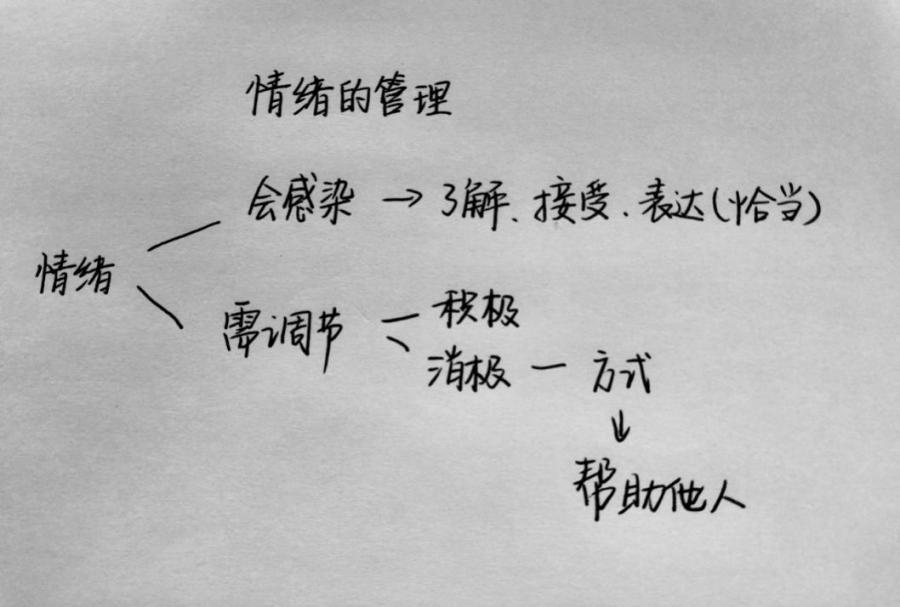 情绪的管理
会感染 → 了解、接受、表达(恰当)
情绪
需调节 — 积极
消极 — 方式
↓
帮助他人